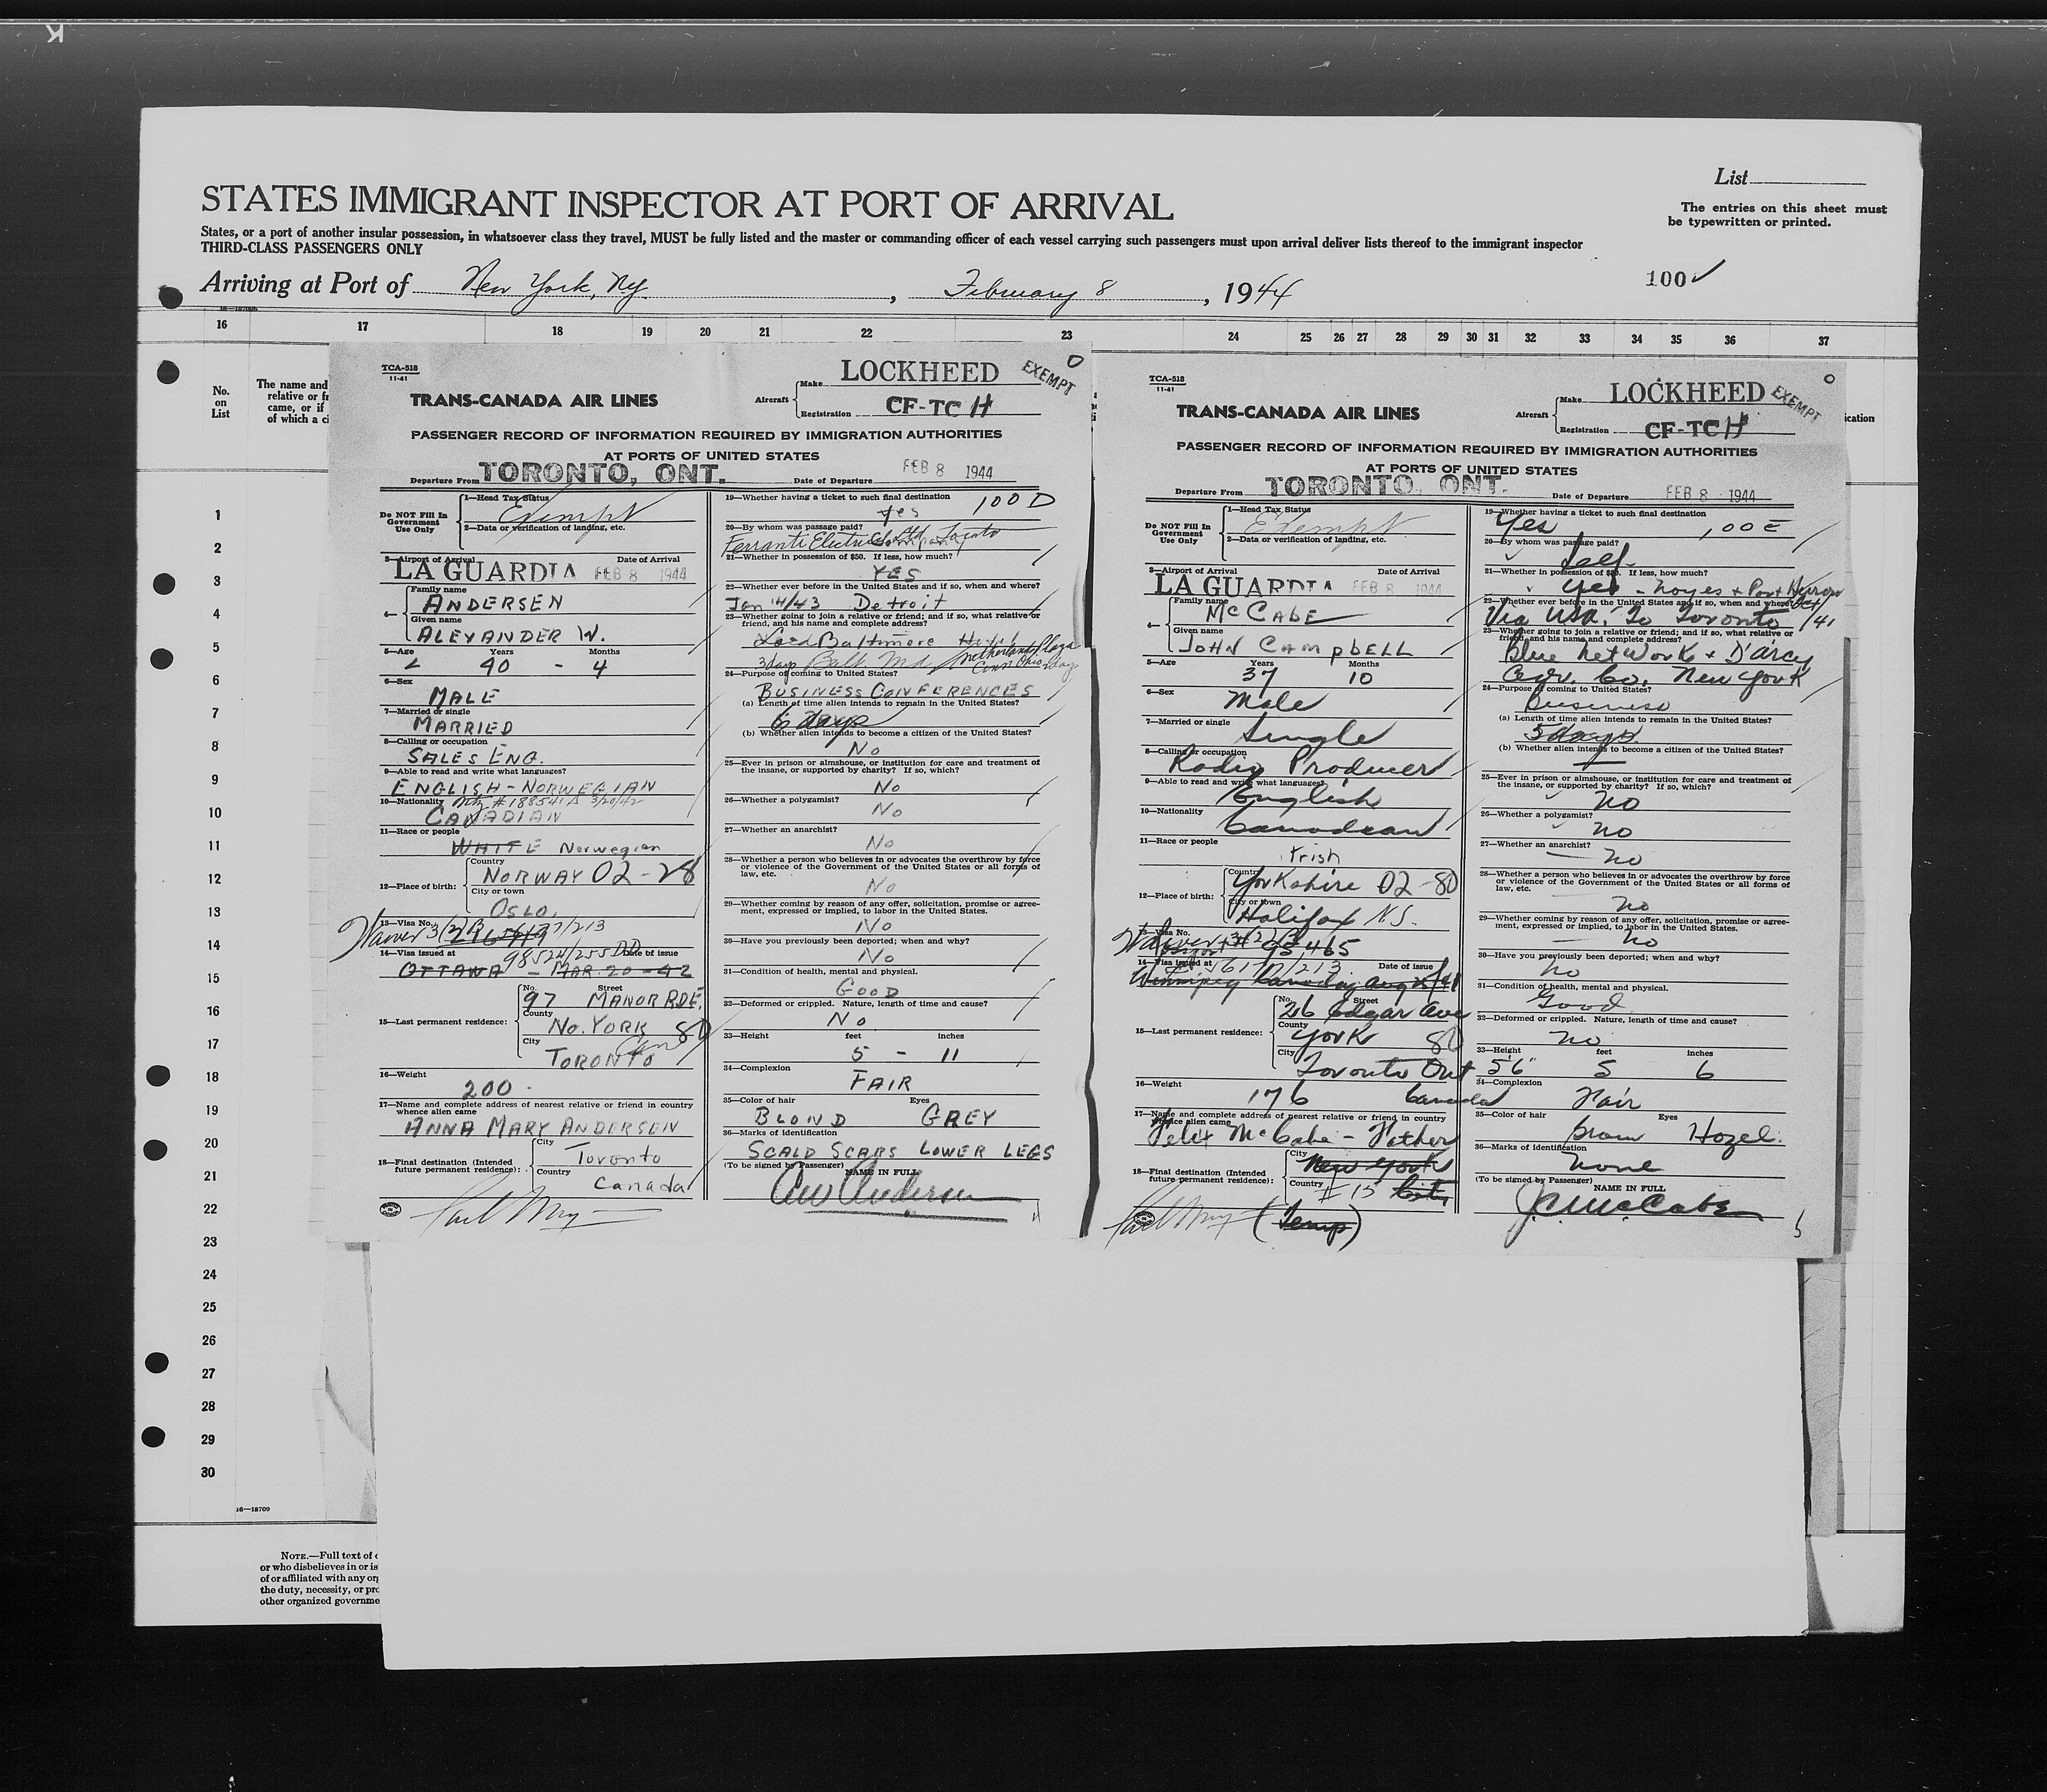 K
List
STATES IMMIGRANT INSPECTOR AT PORT OF ARRIVAL
The entries on this sheet must
be typewritten or printed.
States, or a port of another insular possession, in whatsoever class they travel, MUST be fully listed and the master or commanding officer of each vessel carrying such passengers must upon arrival deliver lists thereof to the immigrant inspector
THIRD-CLASS PASSENGERS ONLY
100 ✓
Arriving at Port of New York, N.Y. , February 8 , 1944
16 17 18 19 20 21 22 23 24 25 26 27 28 29 30 31 32 33 34 35 36 37
No.
on
List
The name and
relative or fr
came, or if
of which a ci
ication
1
2
3
4
5
6
7
8
9
10
11
12
13
14
15
16
17
18
19
20
21
22
23
24
25
26
27
28
29
30
16—18709
NOTE.—Full text of
or who disbelieves in or is
of or affiliated with any org
the duty, necessity, or pro
other organized governme
TCA-518
11-41
TRANS-CANADA AIR LINES
Aircraft
Make LOCKHEED
Registration CF-TCH
EXEMPT
O
PASSENGER RECORD OF INFORMATION REQUIRED BY IMMIGRATION AUTHORITIES
AT PORTS OF UNITED STATES
Departure From TORONTO, ONT. Date of Departure FEB 8 1944
DO NOT Fill In
Government
Use Only
1—Head Tax Status
Exempt
2—Data or verification of landing, etc.
3—Airport of Arrival Date of Arrival
LA GUARDIA FEB 8 1944
4—
Family name
ANDERSEN
Given name
ALEXANDER W.
5—Age Years Months
40 - 4
6—Sex
MALE
7—Married or single
MARRIED
8—Calling or occupation
SALES ENG.
9—Able to read and write what languages?
ENGLISH - NORWEGIAN
10—Nationality #188541A 3/20/42
CANADIAN
11—Race or people
WHITE Norwegian
12—Place of birth:
Country
NORWAY 02-28
City or town
OSLO.
13—Visa No.
Waiver 3(2)B
14—Visa issued at 98524/255 Date of issue
OTTAWA - MAR. 20 - 42
15—Last permanent residence:
No. Street
97 MANOR RDE.
County
No. YORK 80
City
TORONTO Can
16—Weight
200
17—Name and complete address of nearest relative or friend in country
whence alien came
ANNA MARY ANDERSEN
18—Final destination (Intended
future permanent residence):
City
Toronto
Country
Canada
19—Whether having a ticket to such final destination
Yes 100 D
20—By whom was passage paid?
Ferranti Electric Ltd Toronto
21—Whether in possession of $50. If less, how much?
YES
22—Whether ever before in the United States and if so, when and where?
Jan 14/43 Detroit
23—Whether going to join a relative or friend; and if so, what relative or
friend, and his name and complete address?
Lord Baltimore Hotel
3 days Balt. Md. Netherlands Plaza
Cinn Ohio 3 days
24—Purpose of coming to United States?
BUSINESS CONFERENCES
(a) Length of time alien intends to remain in the United States?
6 days
(b) Whether alien intends to become a citizen of the United States?
No
25—Ever in prison or almshouse, or institution for care and treatment of
the insane, or supported by charity? If so, which?
No
26—Whether a polygamist?
No
27—Whether an anarchist?
No
28—Whether a person who believes in or advocates the overthrow by force
or violence of the Government of the United States or all forms of
law, etc.
No
29—Whether coming by reason of any offer, solicitation, promise or agree-
ment, expressed or implied, to labor in the United States.
No
30—Have you previously been deported; when and why?
No
31—Condition of health, mental and physical.
GOOD
32—Deformed or crippled. Nature, length of time and cause?
No
33—Height feet inches
5 - 11
34—Complexion
FAIR
35—Color of hair Eyes
BLOND GREY
36—Marks of identification
SCALD SCARS LOWER LEGS
(To be signed by Passenger) NAME IN FULL
AW Andersen
TCA-518
11-41
TRANS-CANADA AIR LINES
Aircraft
Make LOCKHEED
Registration CF-TCH
EXEMPT
O
PASSENGER RECORD OF INFORMATION REQUIRED BY IMMIGRATION AUTHORITIES
AT PORTS OF UNITED STATES
Departure From TORONTO, ONT. Date of Departure FEB 8 1944
DO NOT Fill In
Government
Use Only
1—Head Tax Status
Exempt
2—Data or verification of landing, etc.
3—Airport of Arrival Date of Arrival
LA GUARDIA FEB 8 1944
4—
Family name
McCABE
Given name
JOHN CAMPbELL
5—Age Years Months
37 10
6—Sex
Male
7—Married or single
Single
8—Calling or occupation
Radio Producer
9—Able to read and write what languages?
English
10—Nationality
Canadian
11—Race or people
Irish
12—Place of birth:
Country
Yorkshire 02-80
City or town
Halifax N.S.
13—Visa No.
Waiver 3(2)B 93,465
14—Visa issued at 56177/213 Date of issue
Winnipeg Canada Aug
15—Last permanent residence:
No. Street
26 Edgar Ave
County
York 80
City
Toronto Ont
16—Weight
176 Canada
17—Name and complete address of nearest relative or friend in country
whence alien came
Felix McCabe - Father
18—Final destination (Intended
future permanent residence):
City
New York
Country
#15 City
(Temp)
19—Whether having a ticket to such final destination
Yes 100 E
20—By whom was passage paid?
Self
21—Whether in possession of $50. If less, how much?
Yes - Noyes + Port Huron
22—Whether ever before in the United States and if so, when and where? Oct
Via USA. To Toronto /41
23—Whether going to join a relative or friend; and if so, what relative or
friend, and his name and complete address?
Blue Network + D'Arcy
Adv. Co. New York
24—Purpose of coming to United States?
Business
(a) Length of time alien intends to remain in the United States?
5 days
(b) Whether alien intends to become a citizen of the United States?
—
25—Ever in prison or almshouse, or institution for care and treatment of
the insane, or supported by charity? If so, which?
No
26—Whether a polygamist?
No
27—Whether an anarchist?
No
28—Whether a person who believes in or advocates the overthrow by force
or violence of the Government of the United States or all forms of
law, etc.
No
29—Whether coming by reason of any offer, solicitation, promise or agree-
ment, expressed or implied, to labor in the United States.
No
30—Have you previously been deported; when and why?
No
31—Condition of health, mental and physical.
Good
32—Deformed or crippled. Nature, length of time and cause?
No
33—Height feet inches
5'6" 5 6
34—Complexion
Fair
35—Color of hair Eyes
Brown Hazel
36—Marks of identification
None
(To be signed by Passenger) NAME IN FULL
J.C. McCabe